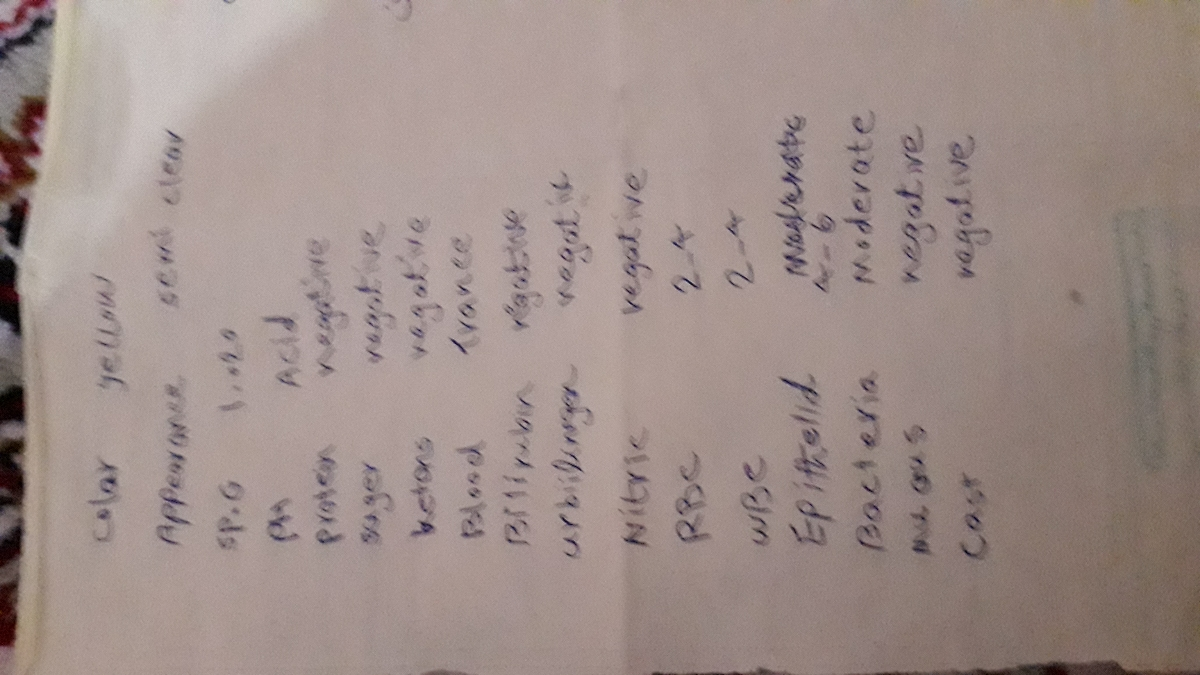 Color yellow
Appearance semi clear
SP.G 1.020
PH Acid
protein negative
suger negative
ketons negative
Blood trance
Bilirubin negative
urbilinogen negative
Nitric negative
RBC 2-4
WBC 2-4
Epithelid 4-6
Bacteria Moderate
mucous negative
Cast negative